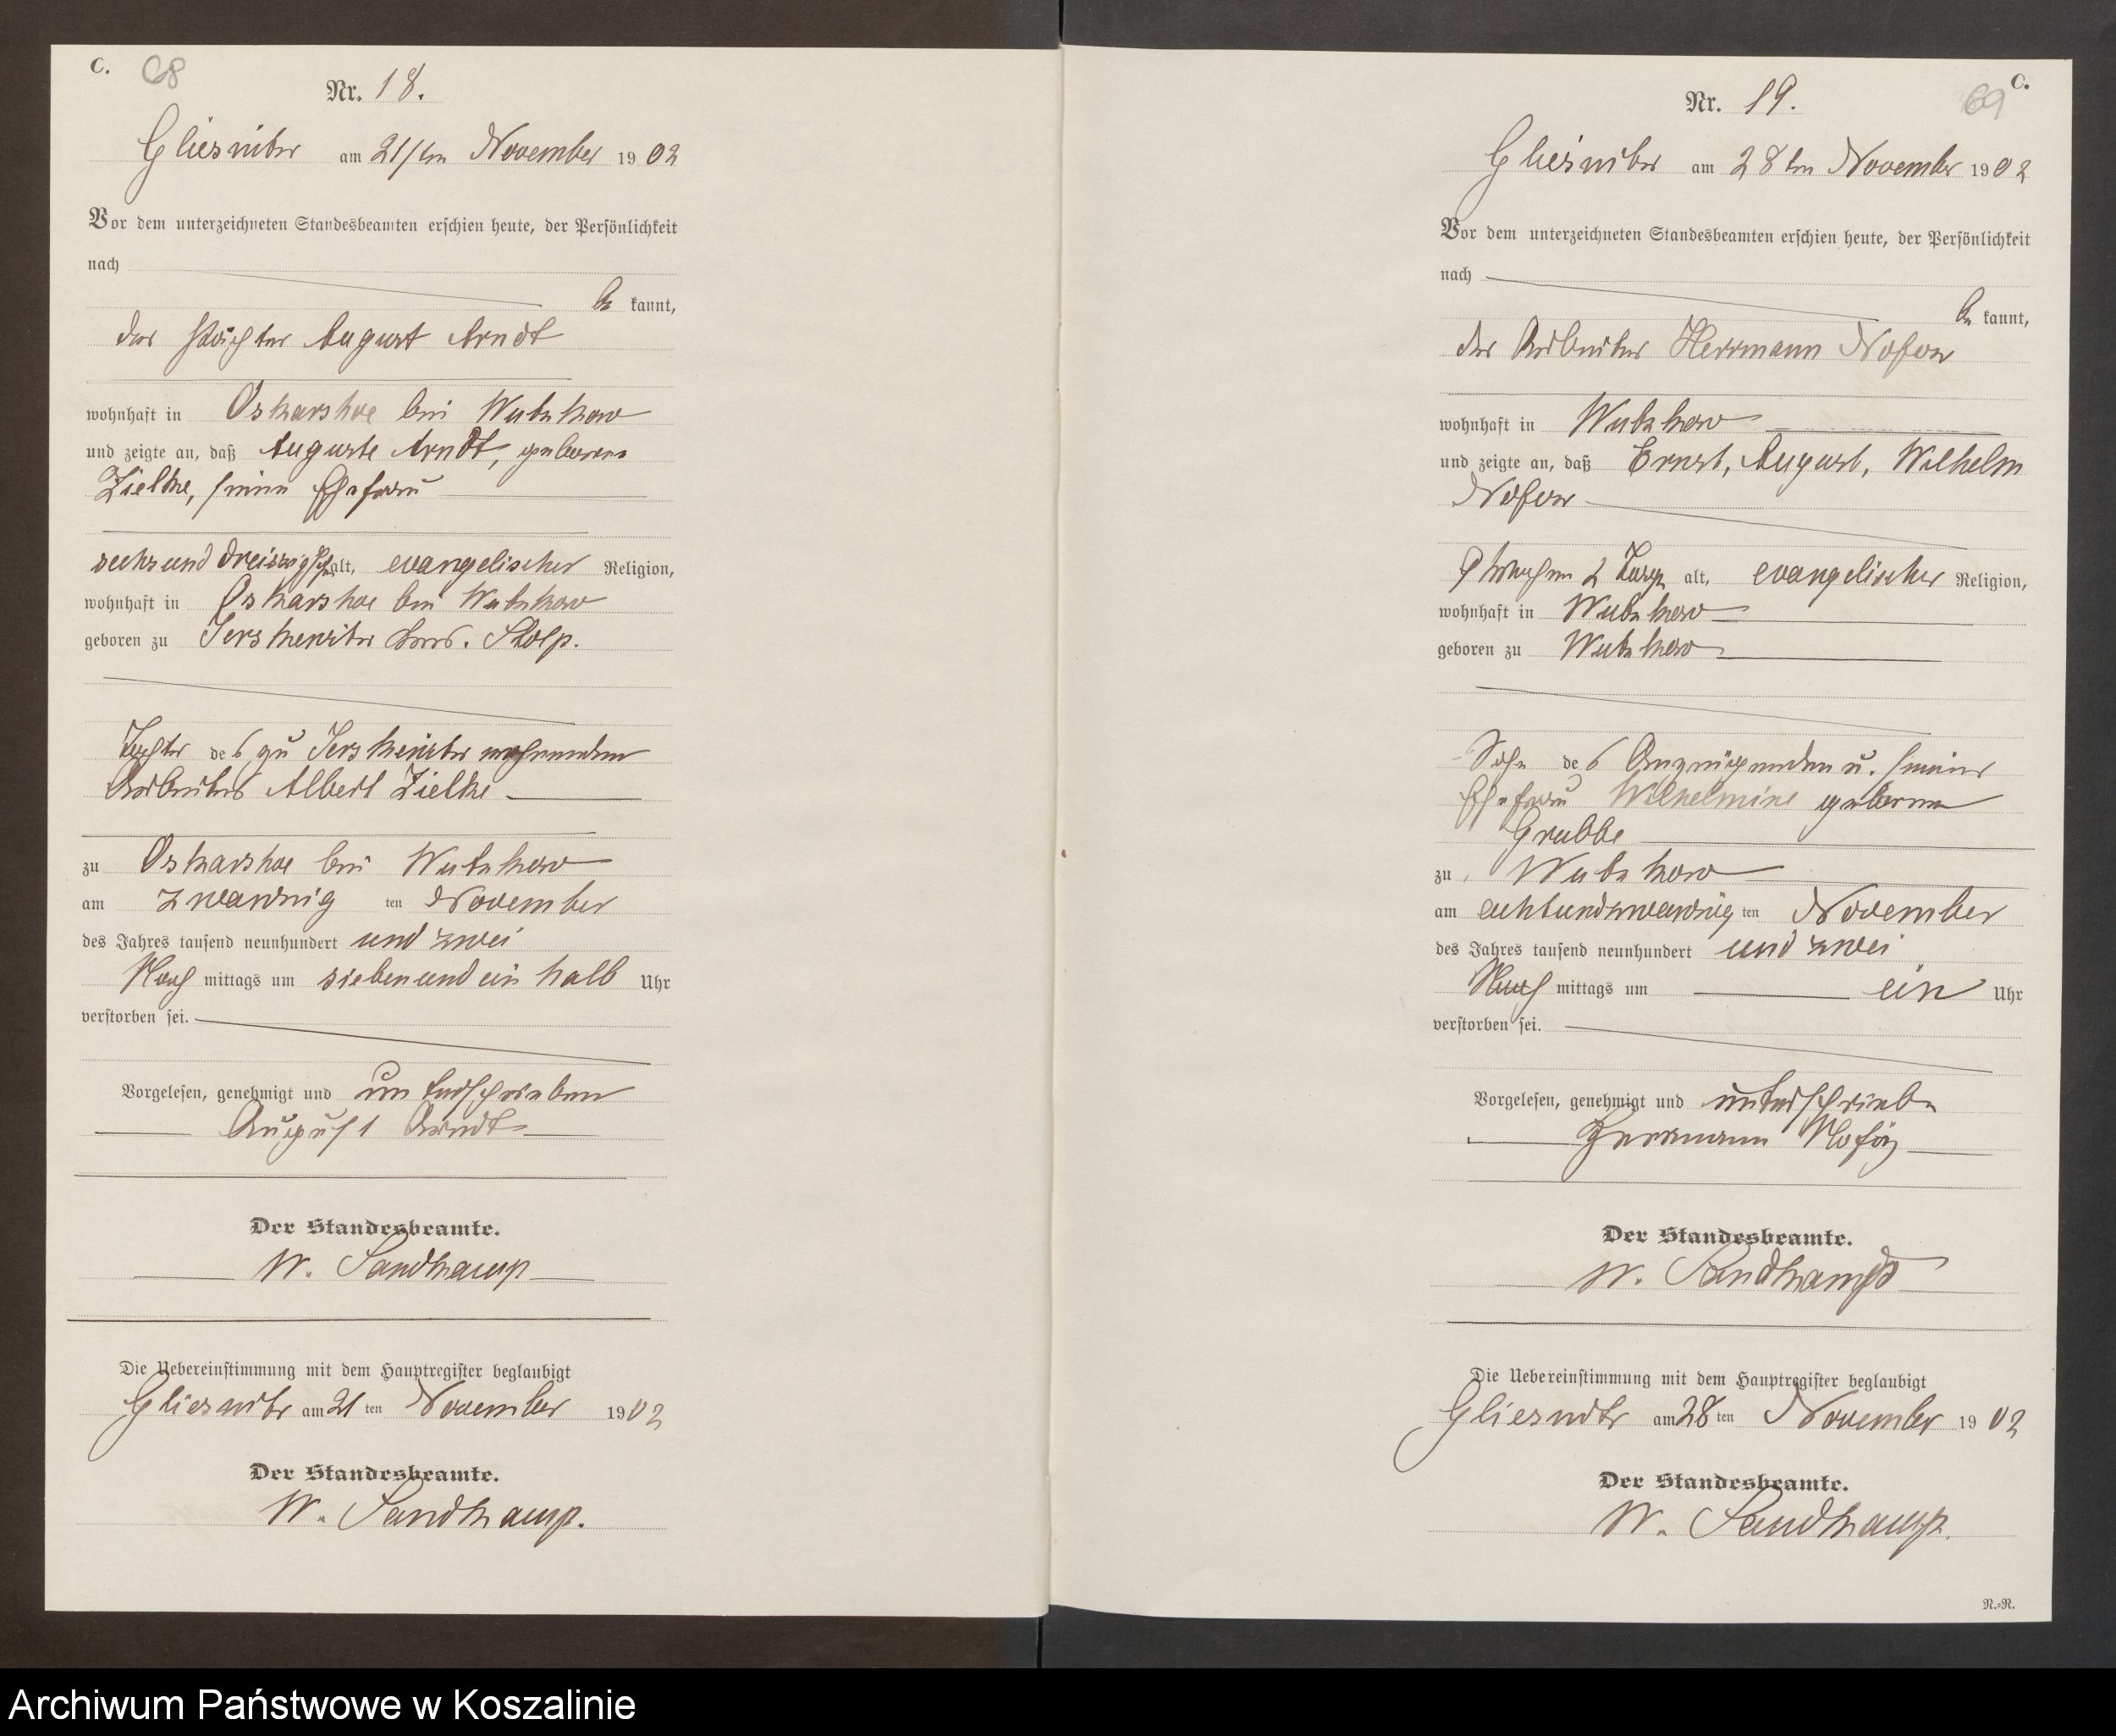 C.
68
Nr. 18.
Gliesnitz am 21ten November 1902
Vor dem unterzeichneten Standesbeamten erschien heute, der Persönlichkeit
nach
be kannt,
der Pächter August Arndt
wohnhaft in Oskarshoe bei Wutzkow
und zeigte an, daß Auguste Arndt, geborene
Zielke, seine Ehefrau
sechsund dreissig alt, evangelischer Religion,
wohnhaft in Oskarshoe bei Wutzkow
geboren zu Stolp.
Tochter des zu wohnenden
Arbeiters Albert Zielke
zu Oskarshoe bei Wutzkow
am zwanzig ten November
des Jahres tausend neunhundert und zwei
Nach mittags um siebenundein halb Uhr
verstorben sei.
Vorgelesen, genehmigt und unterschrieben
August Arndt
Der Standesbeamte.
W. Sandkamp
Die Uebereinstimmung mit dem Hauptregister beglaubigt
Gliesnitz am 21 ten November 1902
Der Standesbeamte.
W. Sandkamp.
C.
69
Nr. 19.
Gliesnitz am 28ten November 1902
Vor dem unterzeichneten Standesbeamten erschien heute, der Persönlichkeit
nach
be kannt,
der Arbeiter Herrmann
wohnhaft in Wutzkow
und zeigte an, daß Ernst, August, Wilhelm
9 Wochen 2 Tage alt, evangelischer Religion,
wohnhaft in Wutzkow
geboren zu Wutzkow
Sohn des Anzeigenden u. seiner
Ehefrau Wilhelmine geborene
Grubbe
zu Wutzkow
am achtundzwanzig ten November
des Jahres tausend neunhundert und zwei
Nach mittags um ein Uhr
verstorben sei.
Vorgelesen, genehmigt und unterschrieben
Herrmann
Der Standesbeamte.
W. Sandkamp
Die Uebereinstimmung mit dem Hauptregister beglaubigt
Gliesnitz am 28 ten November 1902
Der Standesbeamte.
W. Sandkamp.
N.=N.
Archiwum Państwowe w Koszalinie